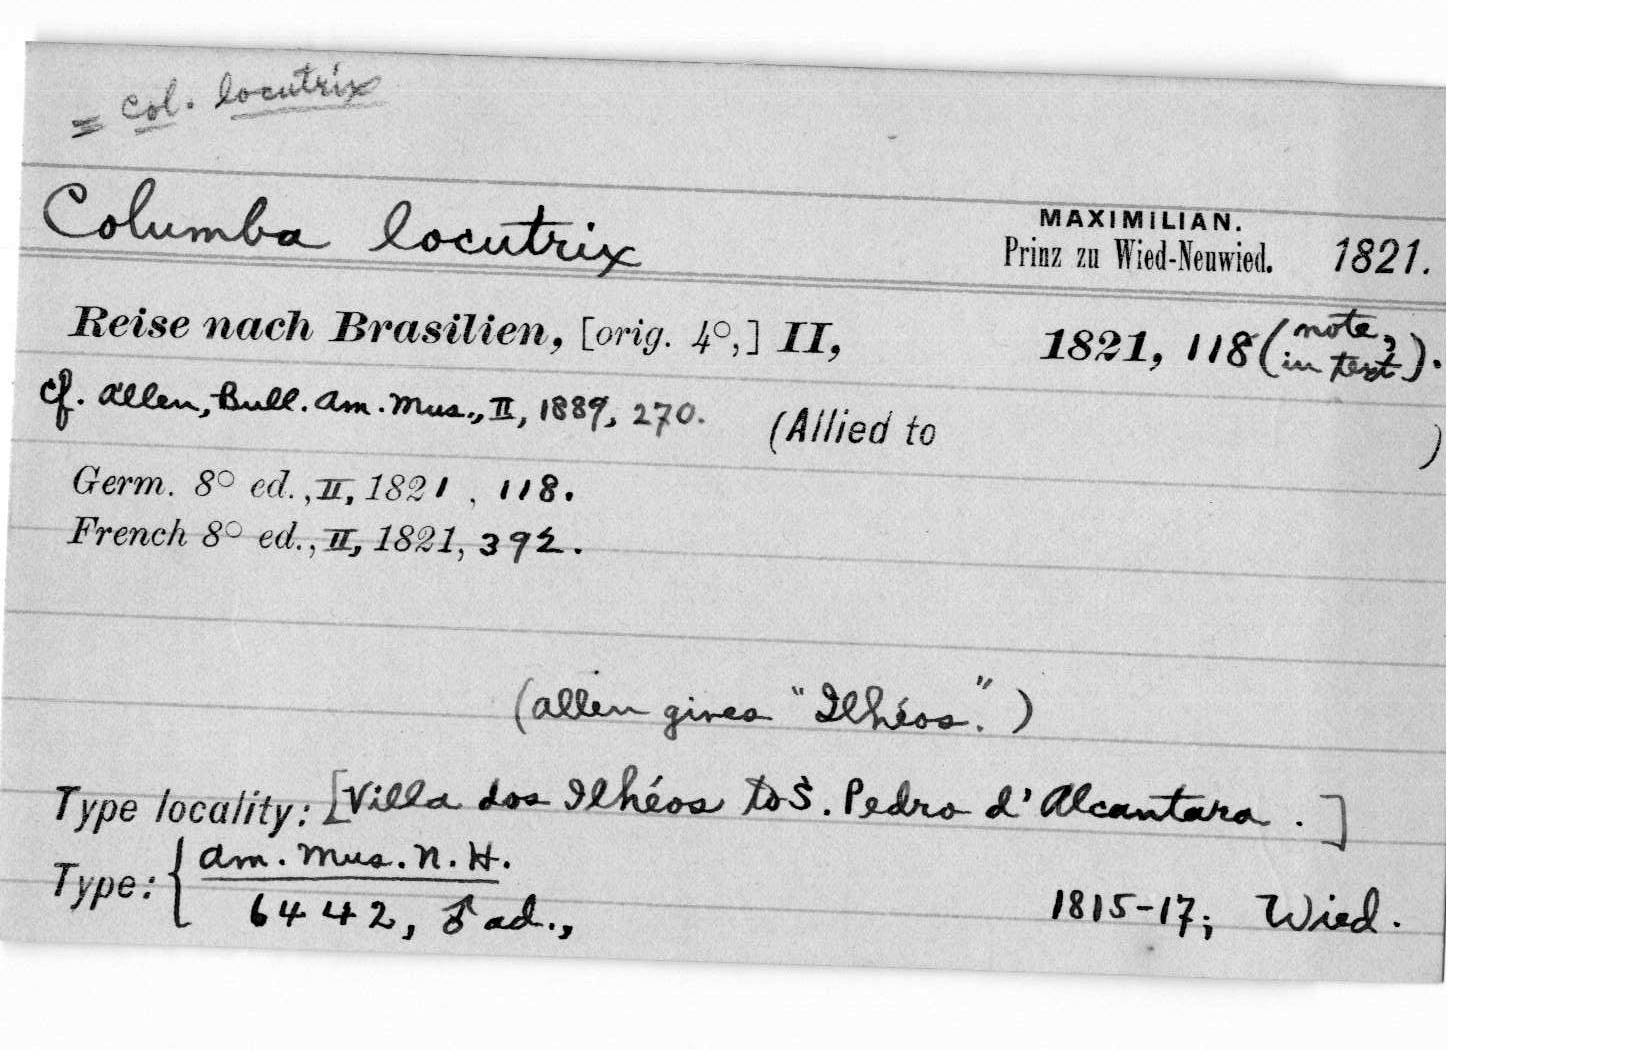 = Col. locutrix
Columba locutrix
MAXIMILIAN.
Prinz zu Wied-Neuwied. 1821.
Reise nach Brasilien, [orig. 4°,] II, 1821, 118 (note, in text).
cf. Allen, Bull. Am. Mus., II, 1889, 270. (Allied to )
Germ. 8° ed., II, 1821, 118.
French 8° ed., II, 1821, 392.
(Allen gives "Ilhéos.")
Type locality: [Villa dos Ilhéos to S. Pedro d'Alcantara.]
Type: { Am. Mus. N. H.
6442, ♂ ad., 1815-17; Wied.